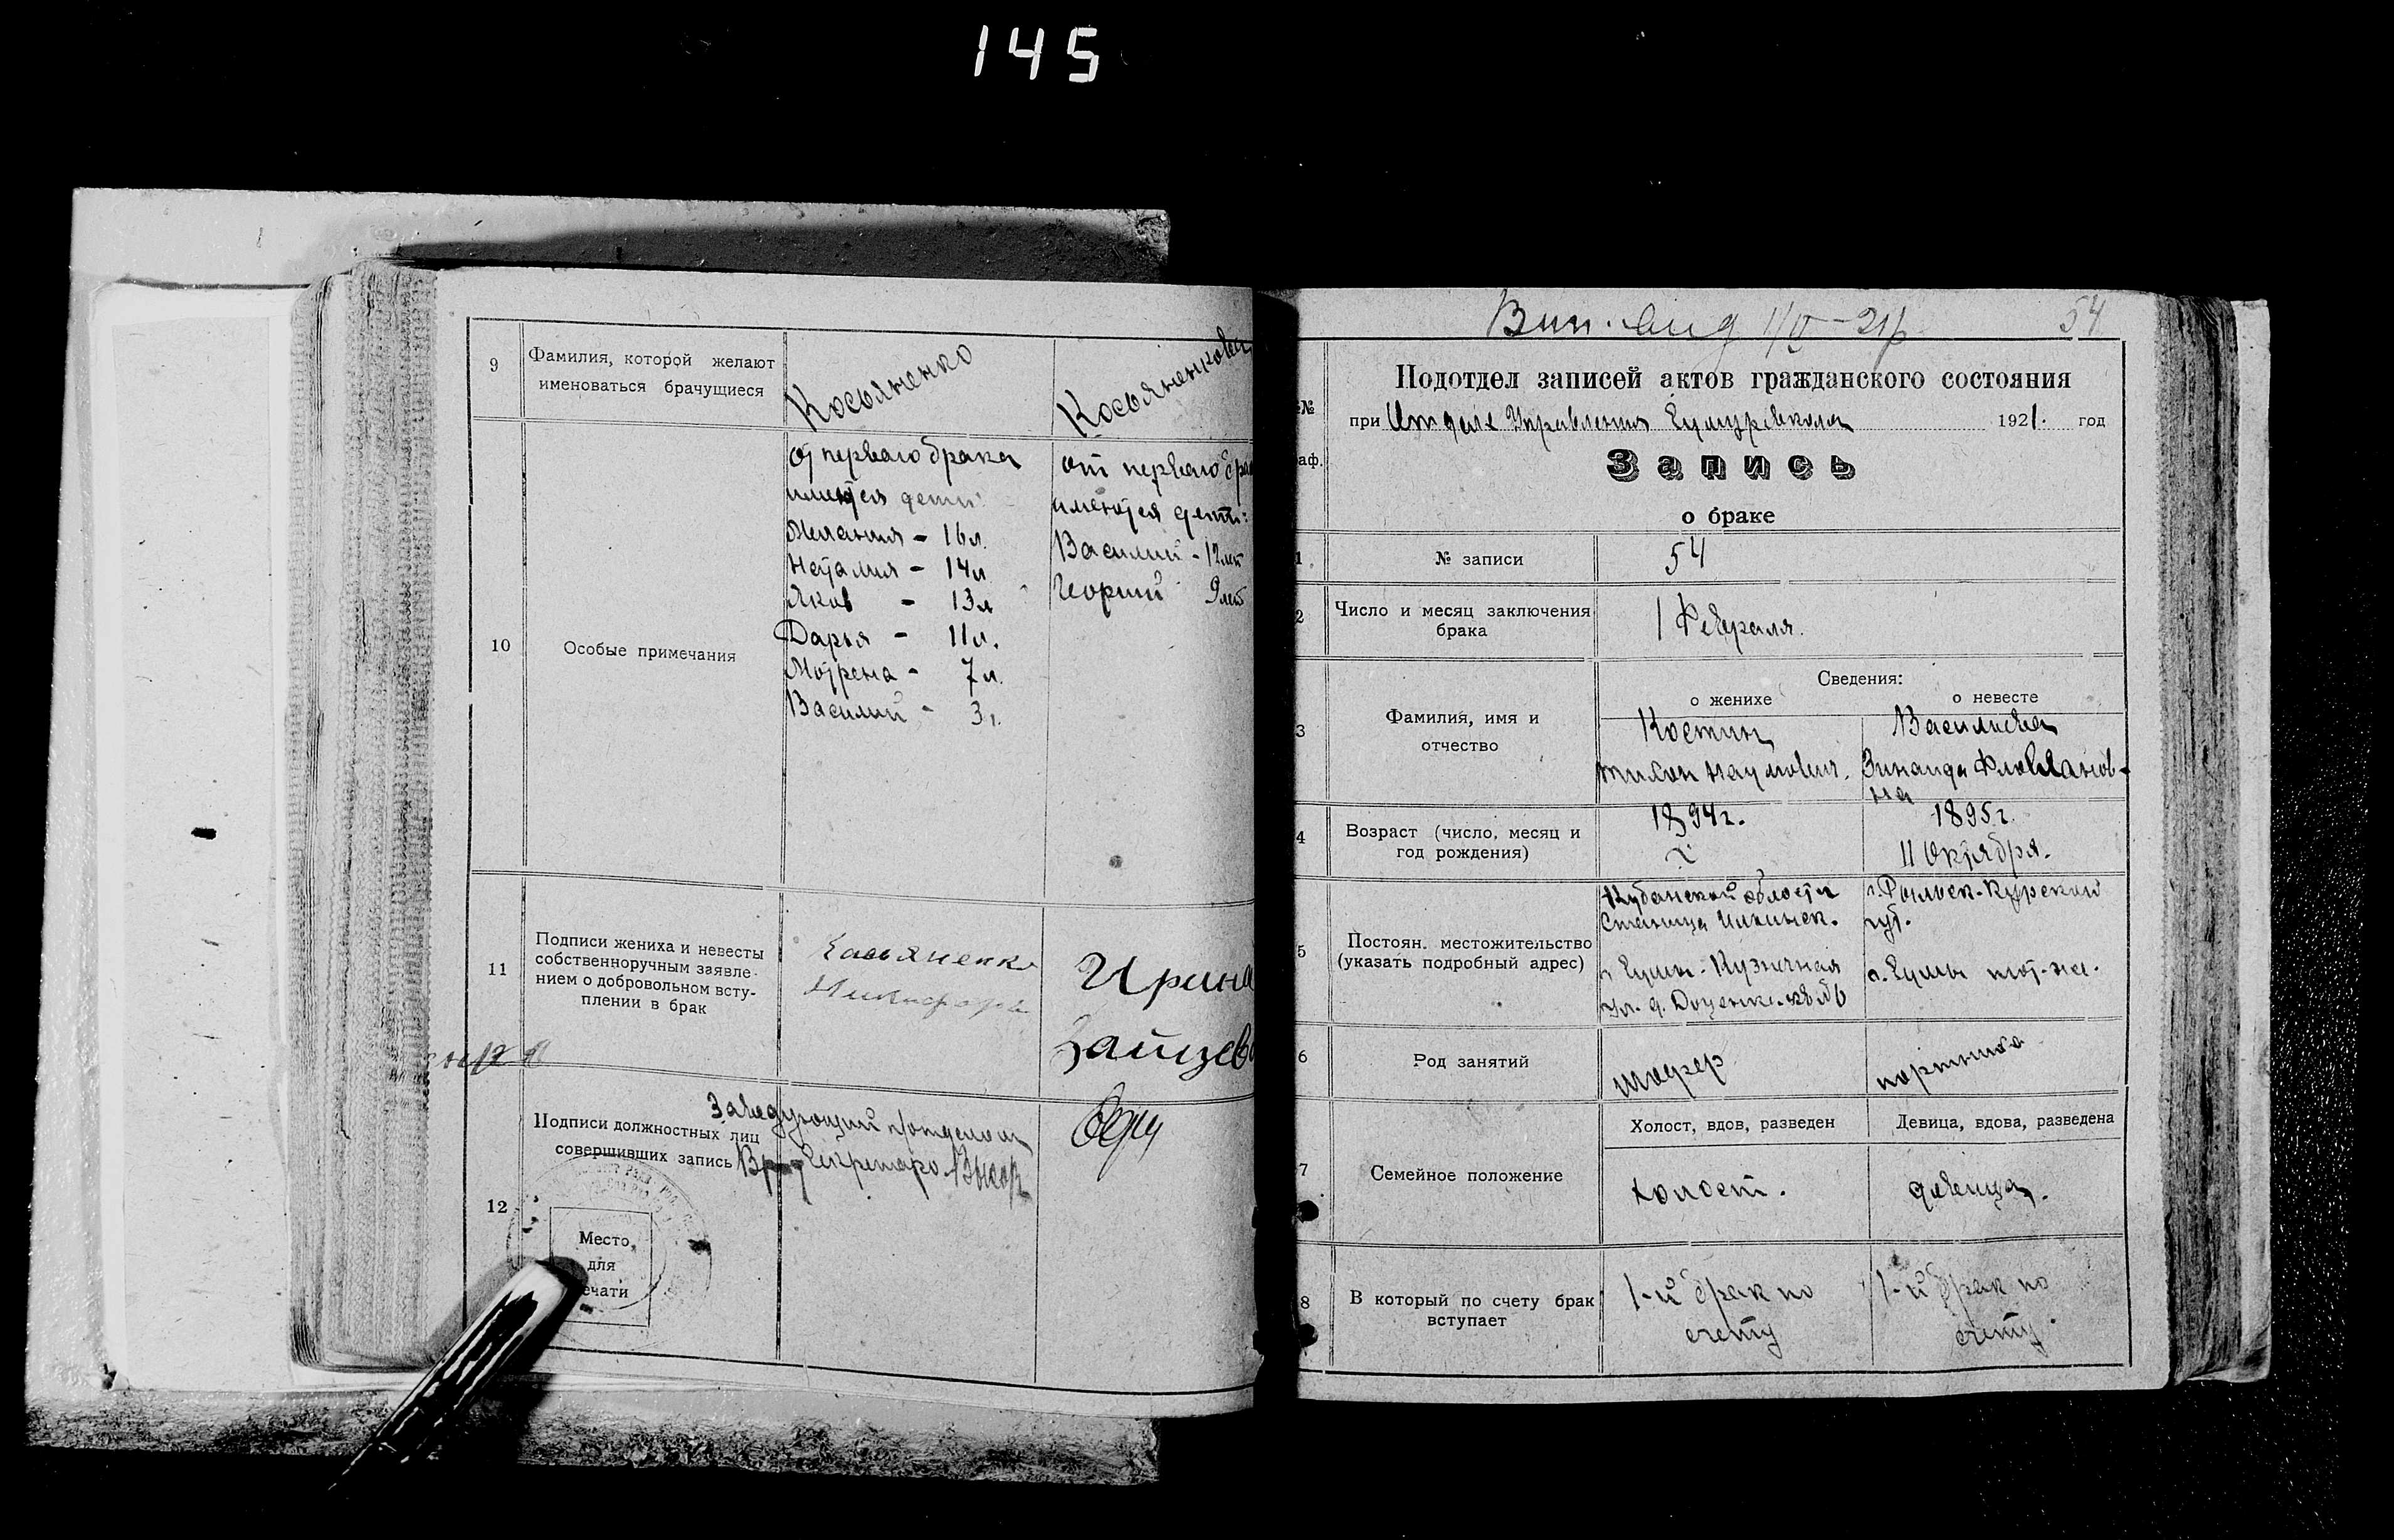 145
9
Фамилия, которой желают
именоваться брачущиеся
Косьяненко
Косьяненкова
10
Особые примечания
От первого брака
имеются дети
Мелания - 16 л.
Наталия - 14 л
Яков - 13 л
Дарья - 11 л.
Мотрена - 7 л.
Василий - 3 г.
от первого бра
имеются дети:
Василий - 12 лет
Георгий 9 лет
11
Подписи жениха и невесты
собственноручным заявле-
нием о добровольном всту-
плении в брак
Касьяненко
Никифора
Ирина
Зайцева
12
Подписи должностных лиц
совершивших запись
Заведующий п/отделом
Секретарь
Место
для
ечати
1/II-21г
54
Подотдел записей актов гражданского состояния
№
аф.
при Отделе Управления 1921. год
Запись
о браке
1
№ записи
54
2
Число и месяц заключения
брака
1 Февраля.
Сведения:
о женихе
о невесте
3
Фамилия, имя и
отчество
Костин
Тихон Наумович.
Васильева
Зинаида
на
4
Возраст (число, месяц и
год рождения)
1894г.
1895г.
11 Октября.
5
Постоян. местожительство
(указать подробный адрес)
Кубанской области
Станица
Кузнечная
ул. д. Доценко
г. Рыльск - Курской
губ.
6
Род занятий
шофер
портниха
7
Семейное положение
Холост, вдов, разведен
Девица, вдова, разведена
холост.
девица.
8
В который по счету брак
вступает
1-й брак по
счету
1-й брак по
счету